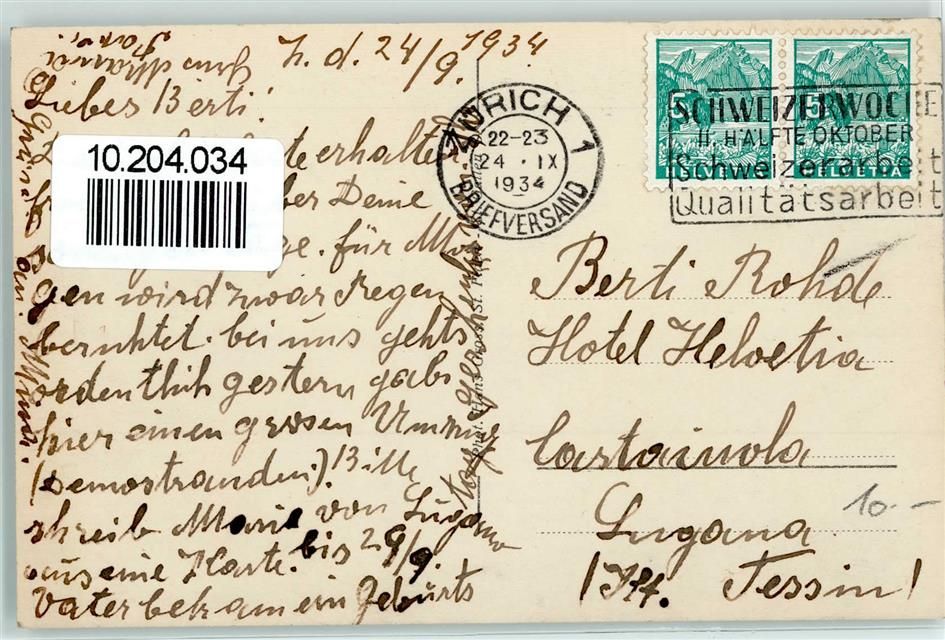 Z. d. 24/9. 1934.
Liebes Berti!
10.204.034
te erhalten
ber Deine
ge. für Mor
gen wird zwar Regen
beruhtet. bei uns gehts
ordentlich gestern gabs
hier einen grosen Umzug
(Demostranden). Bitte
schreib Marie von Lugano
aus eine Karte. bis 29/9.
Vater bekam ein Geburts
ZÜRICH 1
22-23
24. IX
1934
BRIEFVERSAND
5 5
HELVETIA HELVETIA
SCHWEIZERWOCHE
II. HÄLFTE OKTOBER
Schweizerarbeit
Qualitätsarbeit
Berti Rohde
Hotel Helvetia
Castainola
Lugana
(Kt. Tessin)
10.-